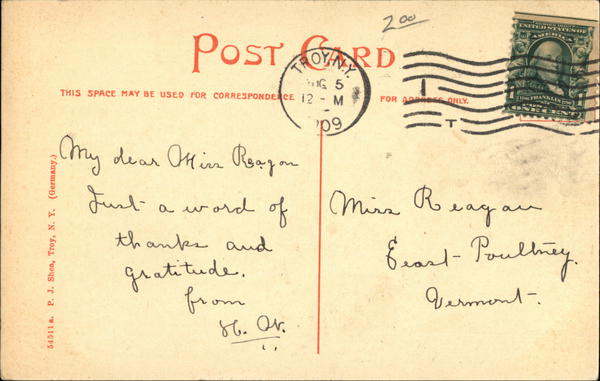 2.00
POST CARD
THIS SPACE MAY BE USED FOR CORRESPONDENCE
FOR ADDRESS ONLY.
TROY, N.Y.
AUG 5
12 - M
1909
T
UNITED STATES OF AMERICA
FRANKLIN
ONE CENT
54511 a. P. J. Shea, Troy, N. Y. (Germany.)
My dear Miss Reagan
Just a word of
thanks and
gratitude.
from
Miss Reagan
East Poultney.
Vermont.